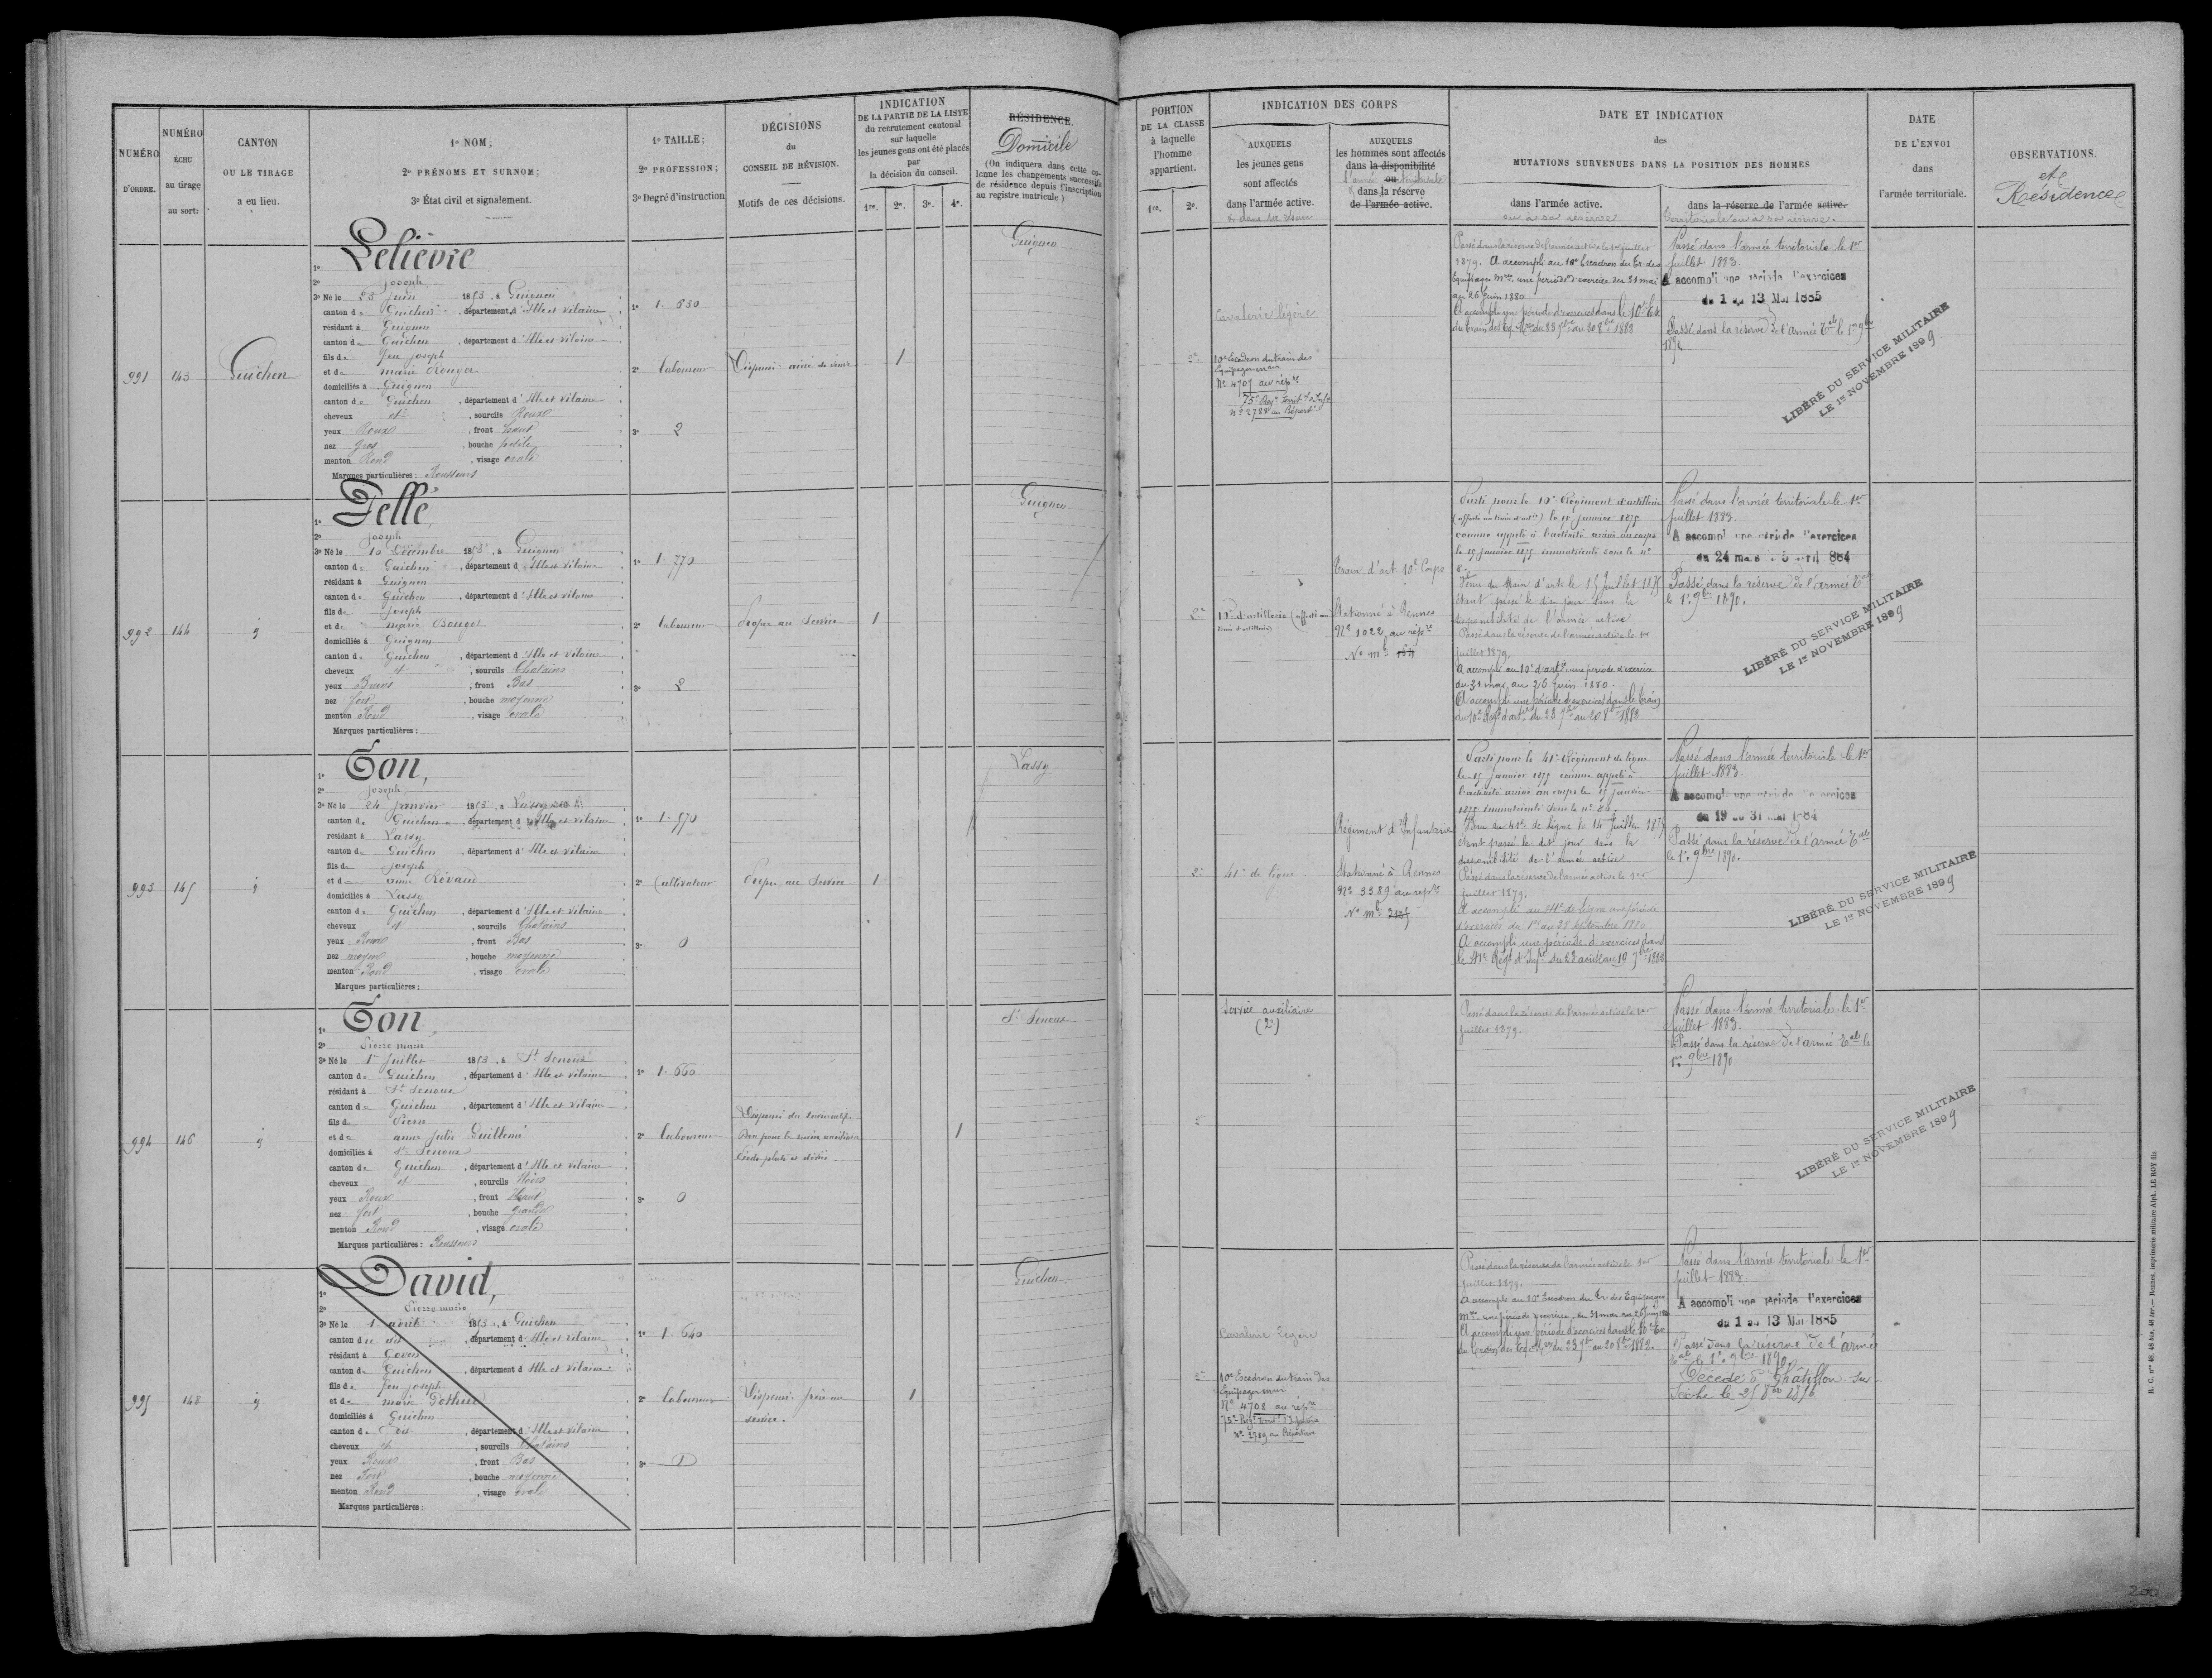 NUMÉRO
D'ORDRE.
NUMÉRO
ÉCHU
au tirage
au sort:
CANTON
OU LE TIRAGE
a eu lieu.
1º NOM;
2º PRÉNOMS ET SURNOM;
3º État civil et signalement.
1º TAILLE;
2º PROFESSION;
3º Degré d'instruction
DÉCISIONS
du
CONSEIL DE RÉVISION.
Motifs de ces décisions.
INDICATION
DE LA PARTIE DE LA LISTE
du recrutement cantonal
sur laquelle
les jeunes gens ont été placés
par
la décision du conseil.
1re. 2e. 3e. 4e.
RÉSIDENCE.
Domicile
(On indiquera dans cette co-
lonne les changements successifs
de résidence depuis l'inscription
au registre matricule.)
PORTION
DE LA CLASSE
à laquelle
l'homme
appartient.
1re. 2e.
INDICATION DES CORPS
AUXQUELS
les jeunes gens
sont affectés
dans l'armée active.
AUXQUELS
les hommes sont affectés
dans la disponibilité
ou
dans la réserve
de l'armée active.
DATE ET INDICATION
des
MUTATIONS SURVENUES DANS LA POSITION DES HOMMES
dans l'armée active.
ou à sa réserve
dans la réserve de l'armée active.
territoriale ou à sa réserve.
DATE
DE L'ENVOI
dans
l'armée territoriale.
OBSERVATIONS.
et
Résidence
991
143
Guichen
1º Lelièvre
2º Joseph
3º Né le 23 Juin 1853, à Guignen
canton de Guichen, département d'Ille et Vilaine
résidant à Guignen
canton de Guichen, département d'Ille et Vilaine
fils de feu Joseph
et de marie Rouger
domiciliés à Guignen
canton de Guichen, département d'Ille et Vilaine
cheveux et, sourcils Roux
yeux Roux, front haut
nez gros, bouche petite
menton Rond, visage ovale
Marques particulières: Rousseurs
1º 1. 630
2º laboureur
3º 2
Dispensé. ainé de veuve
1
Guignen
2e
Cavalerie légère
10e Escadron du train des
Equipages mres
No 4707 au répre
75e Regt territal d'Infie
no 2788 au Répertre
Passé dans la réserve de l'armée active le 1er juillet
1879. A accompli au 10e Escadron du Tr. des
Equipages mres une période d'exercice du 31 mai
au 26 Juin 1880
A accompli une période d'exercices dans le 10e Esc
du train des Eq. Mres du 23 7bre au 20 8bre 1882
Passé dans l'armée territoriale le 1er
Juillet 1883.
A accompli une période d'exercices
du 1 au 13 Mai 1885
Passé dans la réserve de l'armée Tale le 1er 9bre
189
LIBÉRÉ DU SERVICE MILITAIRE
LE 1er NOVEMBRE 1899
992
144
1º Pellé,
2º Joseph
3º Né le 10 Décembre 1853, à Guignen
canton de Guichen, département d'Ille et Vilaine
résidant à Guignen
canton de Guichen, département d'Ille et Vilaine
fils de Joseph
et de marie Bouget
domiciliés à Guignen
canton de Guichen, département d'Ille et Vilaine
cheveux et, sourcils Chatains
yeux Bruns, front Bas
nez fort, bouche moyenne
menton Rond, visage ovale
Marques particulières:
1º 1. 770
2º laboureur
3º 2
Propre au Service
1
Guignen
2e
10e d'artillerie (affecté au
train d'artillerie)
Train d'art. 10e Corps
Stationné à Rennes
No 1022 au répre
No mle 154
Parti pour le 10e Régiment d'artillerie
(affecté au train d'artie) le 15 janvier 1875
comme appelé à l'activité arrivé au corps
le 15 janvier 1875 immatriculé sous le no
Venu du train d'art. le 15 Juillet 1875
étant passé le dit jour dans la
disponibilité de l'armée active
Passé dans la réserve de l'armée active le 1er
juillet 1879.
A accompli au 10e d'artie une période d'exercice
du 31 mai au 26 Juin 1880.
A accompli une période d'exercices dans le train
du 10e Regt d'artie du 23 7bre au 20 8bre 1882
Passé dans l'armée territoriale le 1er
Juillet 1883.
A accompli une période d'exercices
du 24 mars 5 avril 884
Passé dans la réserve de l'armée Tale
le 1er 9bre 1890.
LIBÉRÉ DU SERVICE MILITAIRE
LE 1er NOVEMBRE 1899
993
145
1º Ton,
2º Joseph
3º Né le 24 Janvier 1853, à Lassy
canton de Guichen, département d'Ille et Vilaine
résidant à Lassy
canton de Guichen, département d'Ille et Vilaine
fils de Joseph
et de anne Révaud
domiciliés à Lassy
canton de Guichen, département d'Ille et Vilaine
cheveux et, sourcils Chatains
yeux Roux, front Bas
nez moyen, bouche moyenne
menton Rond, visage ovale
Marques particulières:
1º 1. 570
2º Cultivateur
3º 0
Propre au Service
1
Lassy
2e
41e de ligne
Régiment d'Infanterie
Stationné à Rennes
No 3389 au répre
No mle
Parti pour le 41e Régiment de ligne
le 15 Janvier 1875 comme appelé à
l'activité arrivé au corps le 15 janvier
1875 immatriculé sous le no 86.
Venu du 41e de ligne le 14 Juillet 1875
étant passé le dit jour dans la
disponibilité de l'armée active
Passé dans la réserve de l'armée active le 1er
juillet 1879.
A accompli au 41e de ligne une période
d'exercices du 1er au 28 septembre 1880
A accompli une période d'exercices dans
le 41e Regt d'Infie du 23 août au 19 7bre 1882
Passé dans l'armée territoriale le 1er
Juillet 1883.
A accompli une période exercices
du 19 au 31 mai 1884
Passé dans la réserve de l'armée Tale
le 1er 9bre 1890.
LIBÉRÉ DU SERVICE MILITAIRE
LE 1er NOVEMBRE 1899
994
146
1º Ton
2º Pierre marie
3º Né le 1er Juillet 1853, à St Senoux
canton de Guichen, département d'Ille et Vilaine
résidant à St Senoux
canton de Guichen, département d'Ille et Vilaine
fils de Pierre
et de anne Julie Guillemé
domiciliés à St Senoux
canton de Guichen, département d'Ille et Vilaine
cheveux et, sourcils Noirs
yeux Roux, front Haut
nez fort, bouche grande
menton Rond, visage ovale
Marques particulières: Rousseurs
1º 1. 660
2º laboureur
3º 0
Dispensé du service actif.
Bon pour le service auxiliaire
Pieds plats et déviés
1
St Senoux
2e
Service auxiliaire
(2e)
Passé dans la réserve de l'armée active le 1er
Juillet 1879.
Passé dans l'armée territoriale le 1er
Juillet 1883.
Passé dans la réserve de l'armée Tale le
1er 9bre 1890
LIBÉRÉ DU SERVICE MILITAIRE
LE 1er NOVEMBRE 1899
995
148
1º David,
2º Pierre marie
3º Né le 1 avril 1853, à Guichen
canton du dit, département d'Ille et Vilaine
résidant à Goven
canton de Guichen, département d'Ille et Vilaine
fils de feu Joseph
et de marie Pothier
domiciliés à Guichen
canton du dit, département d'Ille et Vilaine
cheveux et, sourcils Chatains
yeux Roux, front Bas
nez Fort, bouche moyenne
menton Rond, visage ovale
Marques particulières:
1º 1. 640
2º laboureur
3º
Dispensé. frère au
service.
1
Guichen.
2e
Cavalerie légère
10e Escadron du train des
Equipages mres
No 4708 au répre
75e Regt territ. d'Infanterie
no 2789 au Répertoire
Passé dans la réserve de l'armée active le 1er
juillet 1879.
A accompli au 10e Escadron du Tr. des Equipages
mres une période d'exercice du 31 mai au 26 Juin 1880
A accompli une période d'exercices dans le 10e Esc
du train des Eq. Mres du 23 7bre au 20 8bre 1882.
Passé dans l'armée territoriale le 1er
Juillet 1883.
A accompli une période d'exercices
du 1 au 13 Mai 1885
Passé dans la réserve de l'armée
Tale le 1er 9bre 1890.
Décédé à Chatillon sur
Seiche le 25 8bre 1896
R. C. nos 46, 48 bis, 48 ter.— Rennes, imprimerie militaire Alph. LE ROY fils
200